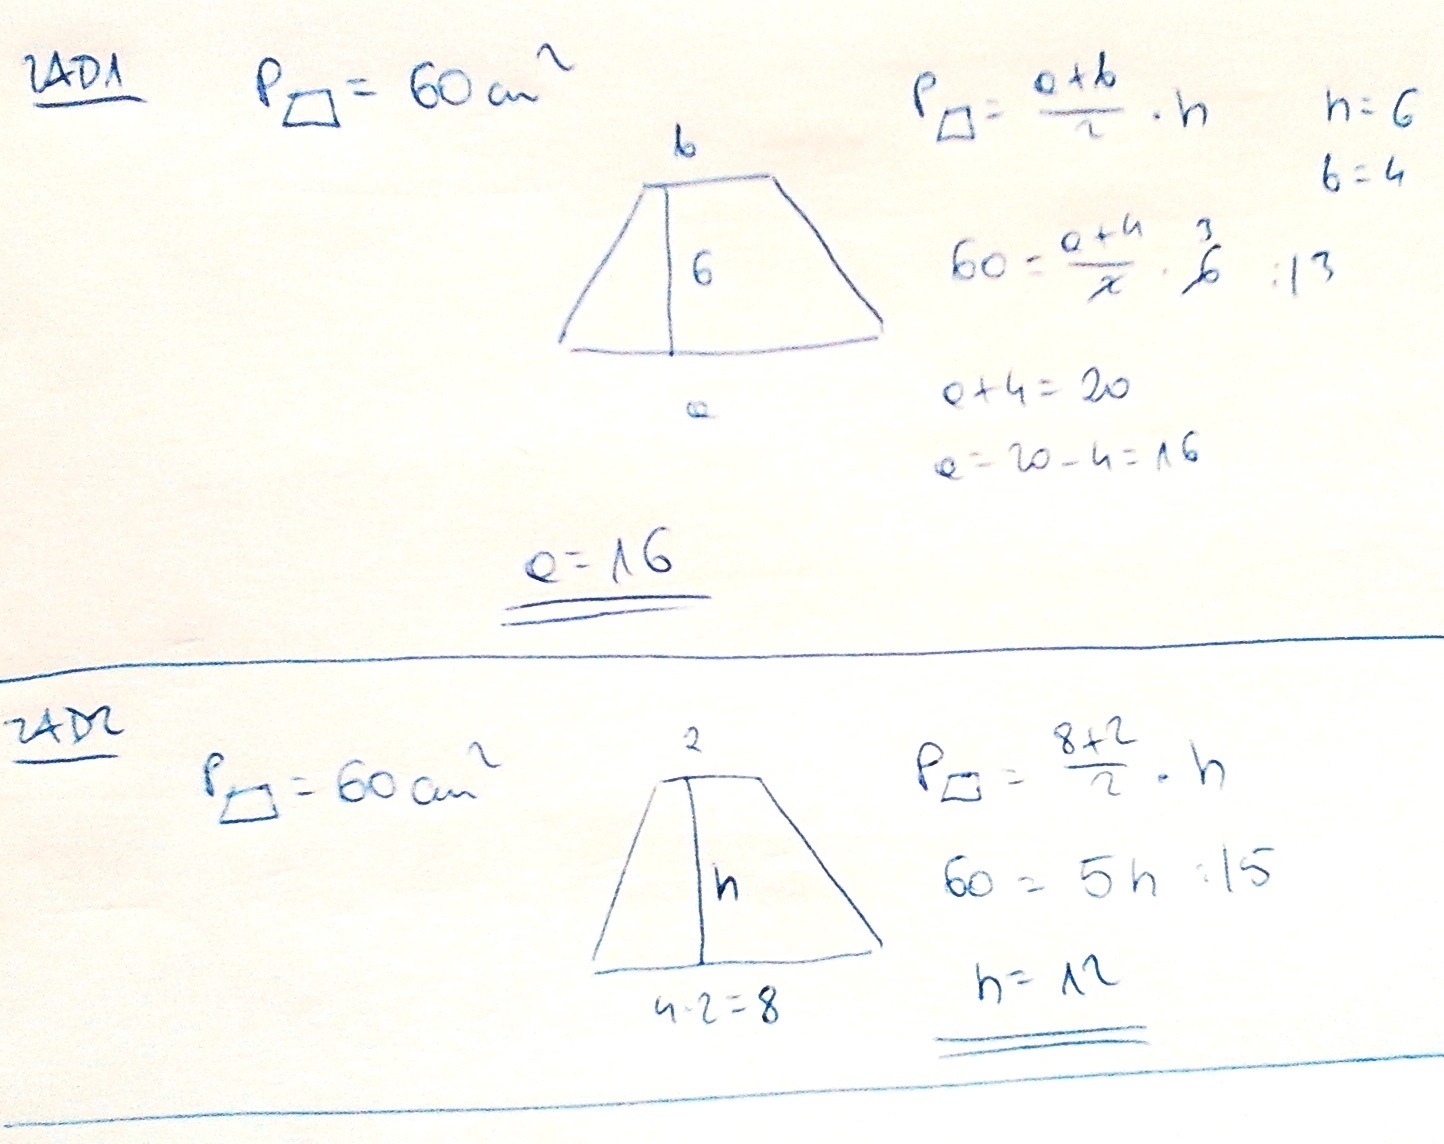 ZAD1
P▱ = 60 cm²
b
6
a
P▱ = (a+b)/2 · h
h = 6
b = 4
60 = (a+4)/2 · 6 3 :|3
a+4 = 20
a = 20-4 = 16
a = 16
ZAD2
P▱ = 60 cm²
2
h
4·2=8
P▱ = (8+2)/2 · h
60 = 5h :|5
h = 12